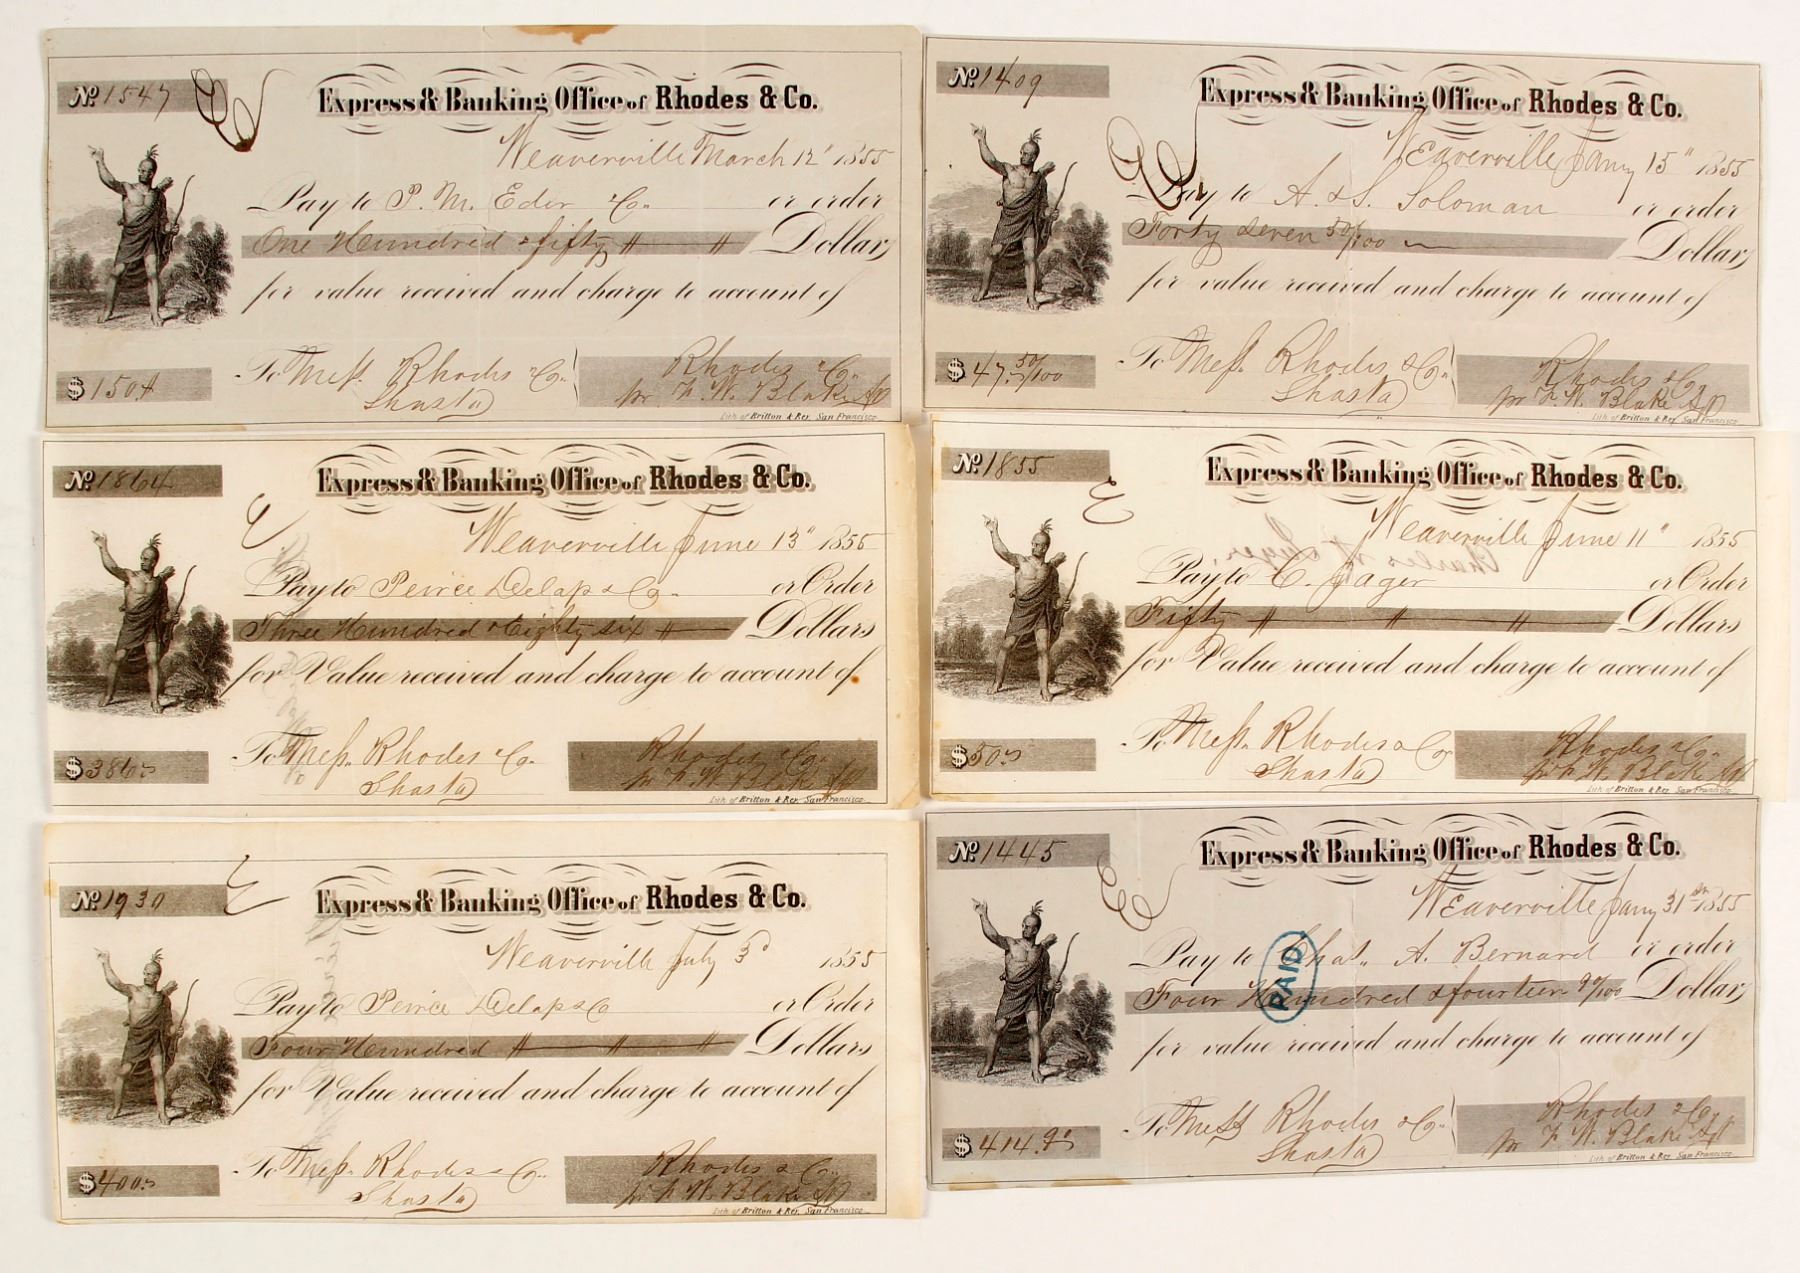 No. 1547
Express & Banking Office of Rhodes & Co.
Weaverville March 12" 1855
Pay to P. M. Eder & Co. or order
One Hundred & fifty " " Dollars
for value received and charge to account of
To Mess. Rhodes & Co.
Shasta
Rhodes & Co.
pr F. W. Blake
$ 150
Lith of Britton & Rey. San Francisco
No. 1409
Express & Banking Office of Rhodes & Co.
Weaverville Jany 15" 1855
Pay to A. & S. Soloman or order
Forty Seven 50/100 Dollars
for value received and charge to account of
To Mess. Rhodes & Co.
Shasta
Rhodes & Co.
pr F. W. Blake
$ 47. 50/100
Lith of Britton & Rey. San Francisco
No. 1864
Express & Banking Office of Rhodes & Co.
Weaverville June 13" 1855
Pay to Peirce Delap & Co. or Order
Three Hundred & Eighty six " Dollars
for Value received and charge to account of
To Mess. Rhodes & Co.
Shasta
Rhodes & Co.
pr F. W. Blake
$ 386
Lith of Britton & Rey. San Francisco
No. 1855
Express & Banking Office of Rhodes & Co.
Weaverville June 11" 1855
Pay to C. Jager or Order
Fifty " " " Dollars
for Value received and charge to account of
To Mess. Rhodes & Co.
Shasta
Rhodes & Co.
pr F. W. Blake
$ 50
Lith of Britton & Rey. San Francisco
No. 1930
Express & Banking Office of Rhodes & Co.
Weaverville July 3d 1855
Pay to Peirce Delap & Co or Order
Four Hundred " " " Dollars
for Value received and charge to account of
To Mess. Rhodes & Co.
Shasta
Rhodes & Co.
pr F. W. Blake
$ 400
Lith of Britton & Rey. San Francisco
No. 1445
Express & Banking Office of Rhodes & Co.
Weaverville Jany 31st 1855
Pay to Chas. A. Bernard or order
Four Hundred & fourteen 90/100 Dollars
PAID
for value received and charge to account of
To Mess Rhodes & Co.
Shasta
Rhodes & Co.
pr F. W. Blake
$ 414.90
Lith of Britton & Rey. San Francisco